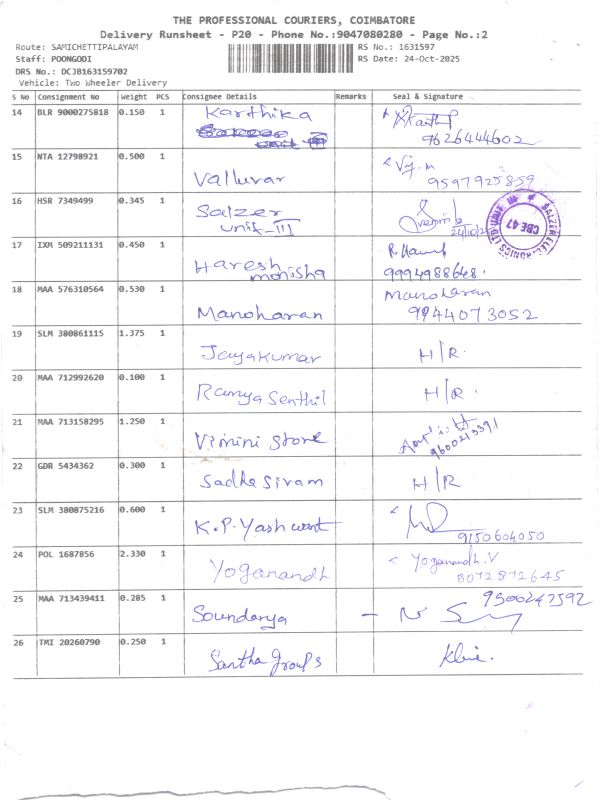 THE PROFESSIONAL COURIERS, COIMBATORE
Delivery Runsheet - P20 - Phone No.:9047080280 - Page No.:2
Route: SAMICHETTIPALAYAM RS No.: 1631597
Staff: POONGODI RS Date: 24-Oct-2025
DRS No.: DCJB163159702
Vehicle: Two Wheeler Delivery
S No Consignment No Weight PCS Consignee Details Remarks Seal & Signature
14 BLR 9000275818 0.150 1 Karthika
9626444602
15 NTA 12798921 0.500 1 Valluvar
9597925859
16 HSR 7349499 0.345 1 Salzer
unit-III 24/10/25
SALZER ELECTRONICS LTD UNIT III
CBE 47
17 IXM 509211131 0.450 1 Haresh
monisha 9994988648.
18 MAA 576310564 0.530 1 Manoharan Manoharan
9944073052
19 SLM 380861115 1.375 1 Jayakumar H/R.
20 MAA 712992620 0.100 1 Ramya Senthil H/R.
21 MAA 713158295 1.250 1 Vimini Store
9600213391
22 GDR 5434362 0.300 1 Sadha Sivam H/R
23 SLM 380875216 0.600 1 K.P. Yashwant
9150604050
24 POL 1687856 2.330 1 Yoganandh Yoganandh.V
8072872645
25 MAA 713439411 0.285 1 Soundarya 9500247592
26 TMI 20260790 0.250 1 Santha Groups